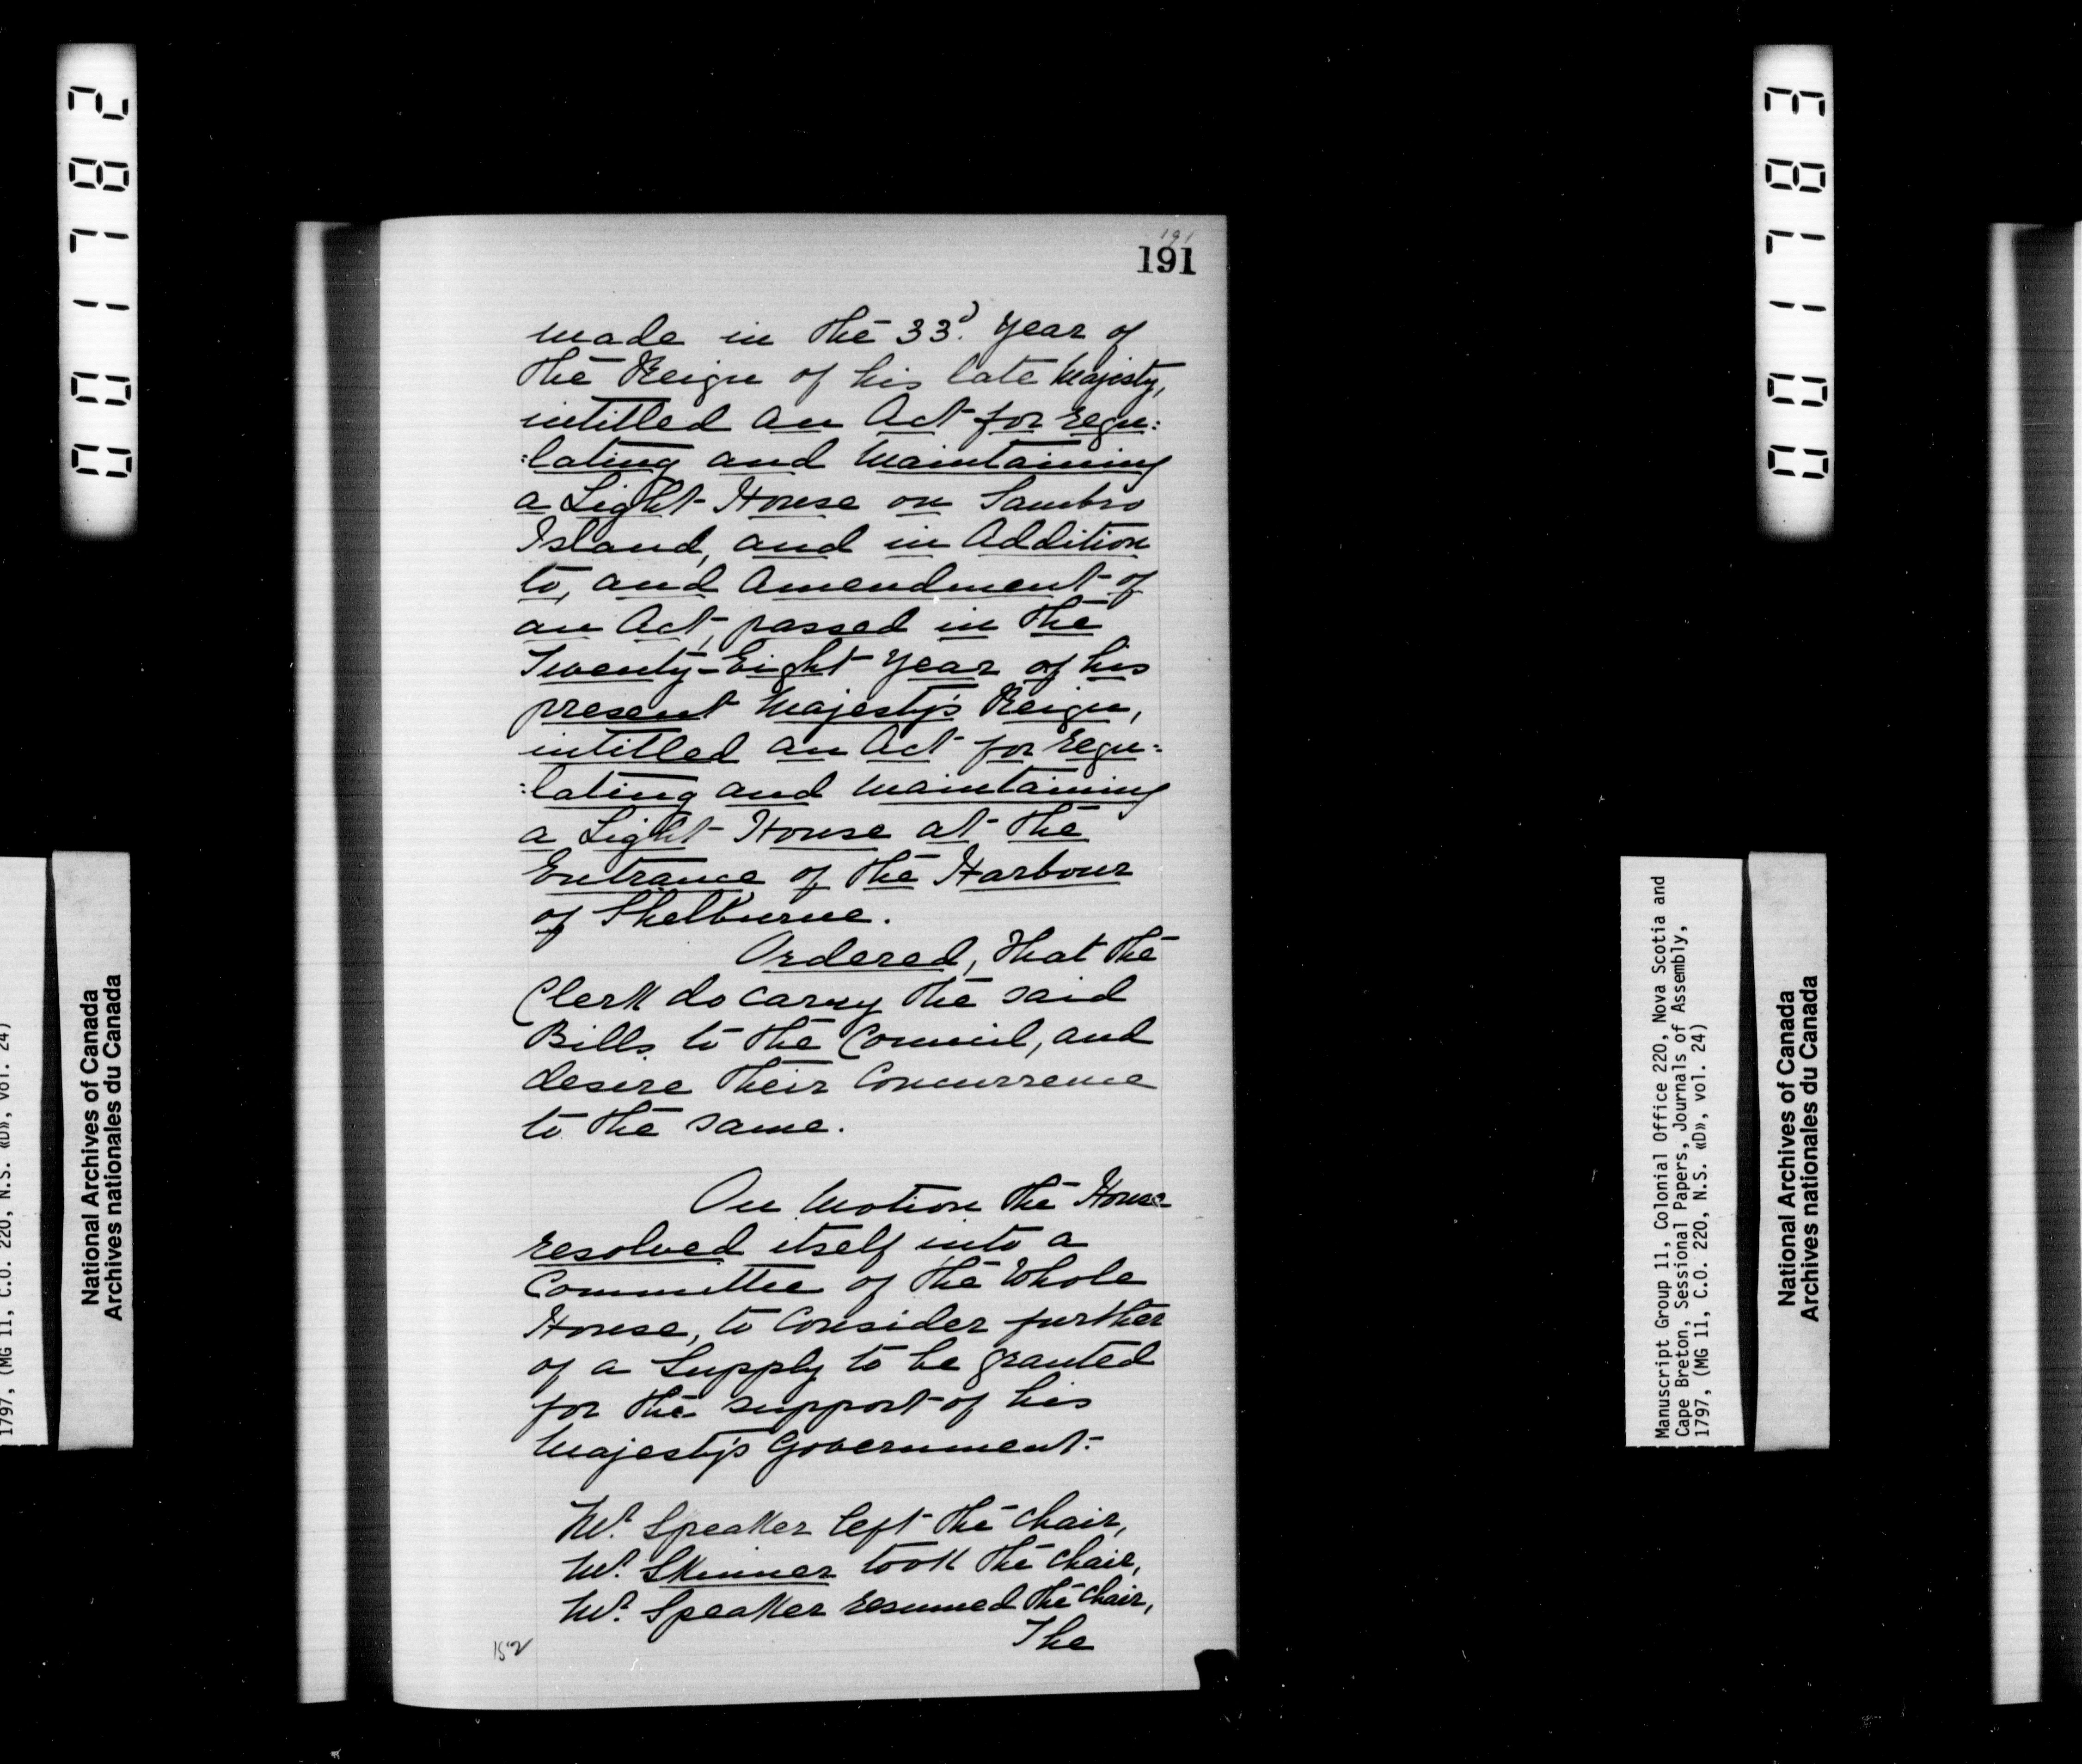 191
191
made in the 33d. Year of
the Reign of his late Majesty,
intitled an Act for regu:
:lating and Maintaining
a Light House on Sambro
Island, and in Addition
to, and Amendment of
an Act, passed in the
Twenty-Eight Year of his
present Majesty's Reign,
intitled an Act for regu:
:lating and maintaining
a Light House at the
Entrance of the Harbour
of Shelburne.
Ordered, that the
Clerk do carry the said
Bills to the Council, and
desire their Concurrence
to the same.
On Motion the House
resolved itself into a
Committee of the Whole
House, to Consider further
of a Supply to be granted
for the support of his
Majesty's Government.
Mr. Speaker left the Chair,
Mr. Skinner took the Chair,
Mr. Speaker resumed the Chair,
The
001782
National Archives of Canada
Archives nationales du Canada
1797, (MG 11, C.O. 220, N.S. «D», vol. 24)
001783
Manuscript Group 11, Colonial Office 220, Nova Scotia and
Cape Breton, Sessional Papers, Journals of Assembly,
1797, (MG 11, C.O. 220, N.S. «D», vol. 24)
National Archives of Canada
Archives nationales du Canada